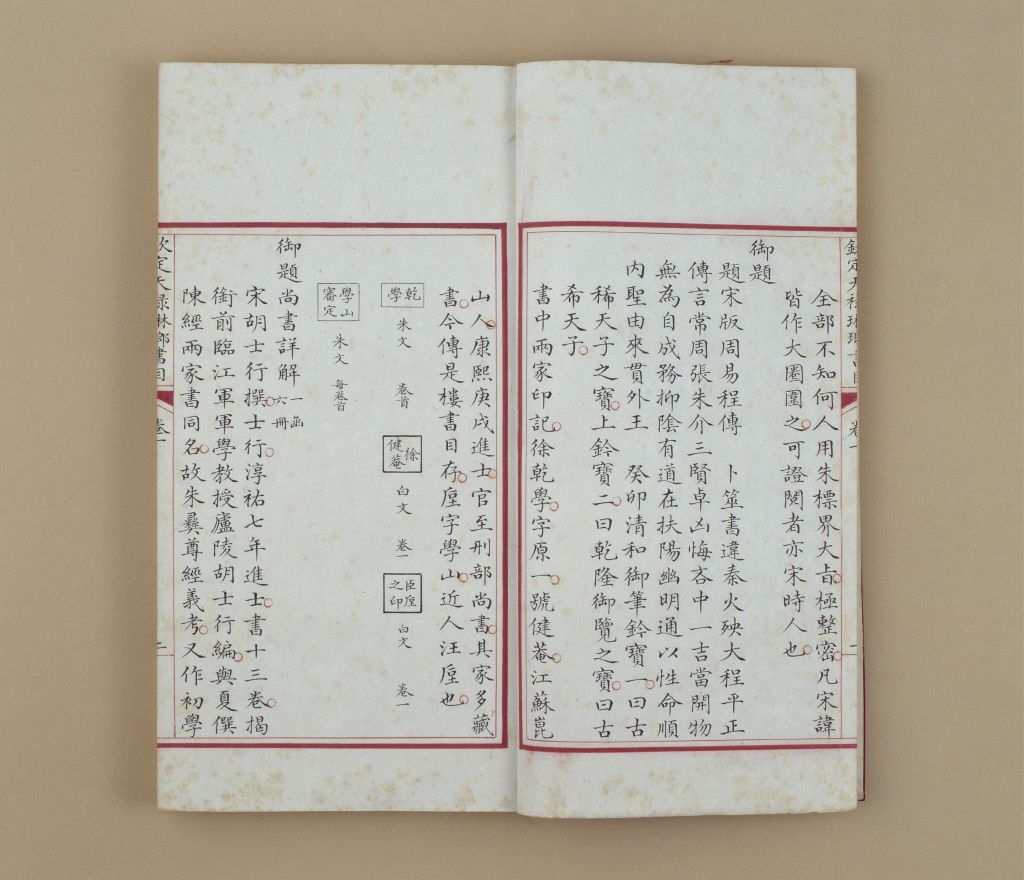 全部不知何人用朱標界大旨極整密凡宋諱
皆作大圈圍之可證閱者亦宋時人也
御題
題宋版周易程傳 卜筮書違秦火殃大程平正
傳言常周張朱介三賢卓凶悔吝中一吉當開物
無為自成務抑陰有道在扶陽幽明通以性命順
內聖由來貫外王 癸卯清和御筆鈐寶一曰古
稀天子之寶上鈐寶二曰乾隆御覽之寶曰古
希天子
書中兩家印記徐乾學字原一號健菴江蘇崑
山人康熙庚戌進士官至刑部尚書其家多藏
書今傳是樓書目存垕字學山近人汪垕也
乾學 朱文 卷首 徐健菴 白文 卷一 臣垕之印 白文 卷一
學山審定 朱文 每卷首
御題尚書詳解 一函六冊
宋胡士行撰士行淳祐七年進士書十三卷揭
銜前臨江軍軍學教授廬陵胡士行編與夏僎
陳經兩家書同名故朱彝尊經義考又作初學
欽定天祿琳瑯書目 卷一 二